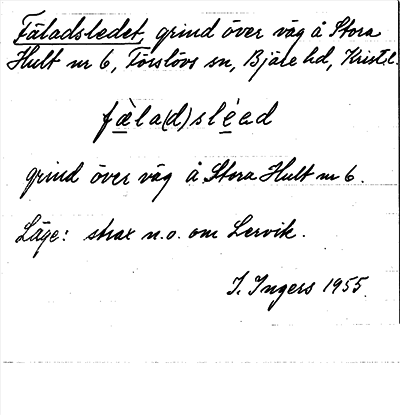 Fäladsledet, grind över väg å Stora
Hult nr 6, Förslövs sn, Bjäre hd, Krist.l.
fæ̀la(d)sléad
grind över väg å Stora Hult nr 6.
Läge: strax n.o. om Lervik.
I. Ingers 1955.